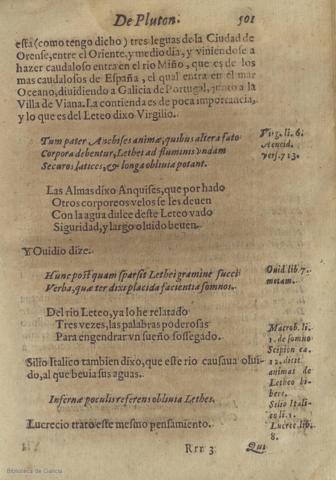 De Pluton. 501
está (como tengo dicho) tres leguas de la Ciudad de
Orense, entre el Oriente, y medio dia, y viniendose a
hazer caudaloso entra en el rio Miño, que es de los
mas caudalosos de España, el qual entra en el mar
Oceano, diuidiendo a Galicia de Portugal, junto a la
Villa de Viana. La contienda es de poca importancia,
y lo que es del Leteo dixo Virgilio.
Tum pater Anchises animæ, quibus altera fato
Corpora debentur, Lethei ad fluminis vndam
Securos latices, & longa obliuia potant.
Virg. li. 6.
Aeneid.
vers. 713.
Las Almas dixo Anquises, que por hado
Otros corporeos velos se les deuen
Con la agua dulce deste Leteo vado
Siguridad, y largo oluido beuen.
Y Ouidio dize.
Hunc postquam sparsit Lethei gramine succi
Verba, quæ ter dixi placida facientia somnos.
Ouid lib 7.
metam.
Del rio Leteo, ya lo he relatado
Tres vezes, las palabras poderosas
Para engendrar vn sueño sossegado.
Silio Italico tambien dixo, que este rio causaua olui-
do, al que beuia sus aguas.
Infernæ poculis referens obliuia Lethes.
Lucrecio trato este mismo pensamiento.
Macrob. li.
1. de somno
Scipion ca.
12. dicit.
animas de
Letheo bi-
bere.
Silio Itali-
co li. 1.
Lucrec lib.
8.
Rrr 3 Qui
Biblioteca de Galicia